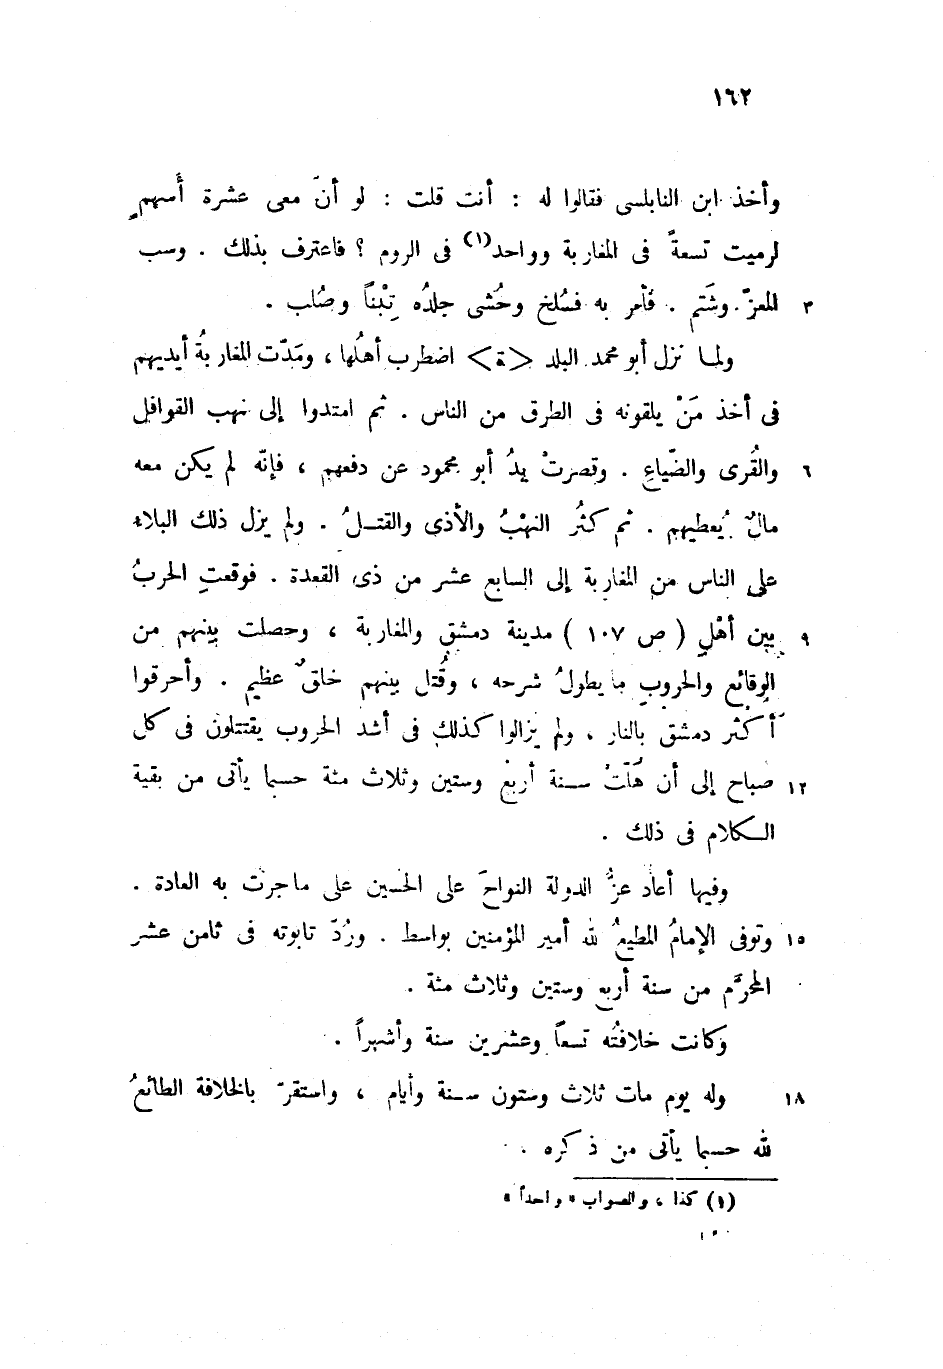 ١٦٢
وأخذ ابن النابلسى فقالوا له : أنت قلت : لو أنّ معى عشرة أَسهمٍ
لرميت تسعةً فى المغاربة وواحد(١) فى الروم ؟ فاعترف بذلك . وسب
٣ المعزّ وشَتم . فأمر به فسُلخ وحُشى جلدُه تِبْناً وصُلب .
ولما نزل أبو محمد البلد <ة> اضطرب أهلُها ، ومَدّت المغاربةُ أيديهم
فى أخذ مَنْ يلقونه فى الطرق من الناس . ثم امتدوا إلى نهب القوافل
٦ والقُرى والضّياعِ . وقصرتْ يدُ أبو محمود عن دفعهم ، فإنّه لم يكن معه
مالٌ يُعطيهم . ثم كثُر النهْبُ والأذى والقتـلُ . ولم يزل ذلك البلاء
على الناس من المغاربة إلى السابع عشر من ذى القعدة . فوقعتِ الحربُ
٩ بين أهْلِ ( ص ١٠٧ ) مدينة دمشق والمغاربة ، وحصلت بينهم من
الوقائع والحروب ما يطولُ شرحه ، وقُتل بينهم خلقٌ عظيم . وأحرقوا
أكثر دمشق بالنار ، ولم يزالوا كذلك فى أشد الحروب يقتتلون فى كل
١٢ صباح إلى أن هَلّتْ سـنة أربعْ وستين وثلاث مئة حسبما يأتى من بقية
الـكلام فى ذلك .
وفيها أعاد عزُّ الدولة النواحَ على الحسين على ما جرت به العادة .
١٥ وتوفى الإمامُ المطيعُ لله أمير المؤمنين بواسط . ورُدّ تابوته فى ثامن عشر
المحرّم من سنة أربع وستين وثلاث مئة .
وكانت خلافتُه تسعاً وعشرين سنة وأشهراً .
١٨ وله يوم مات ثلاث وستون سـنة وأيام ، واستقرّ بالخلافة الطائعُ
لله حسبما يأتى من ذكره .
(١) كذا ، والصواب « واحداً »